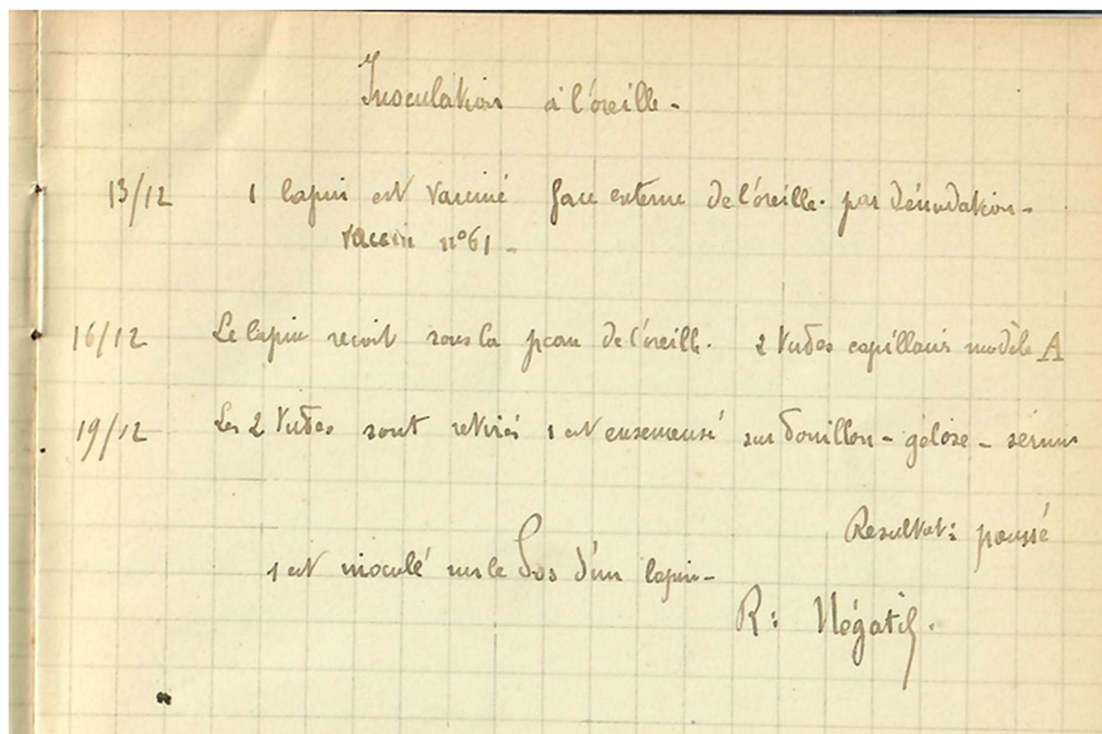 Inoculation à l'oreille -
13/12 1 lapin est vacciné face externe de l'oreille. par dénudation -
vaccin n°61 -
16/12 Le lapin reçoit sous la peau de l'oreille. 2 tubes capillaires modèle A
19/12 Les 2 tubes sont retirés 1 est ensemensé sur bouillon - gélose - sérum
Resultat: poussé
1 est inoculé sur le dos d'un lapin -
R: Négatif.